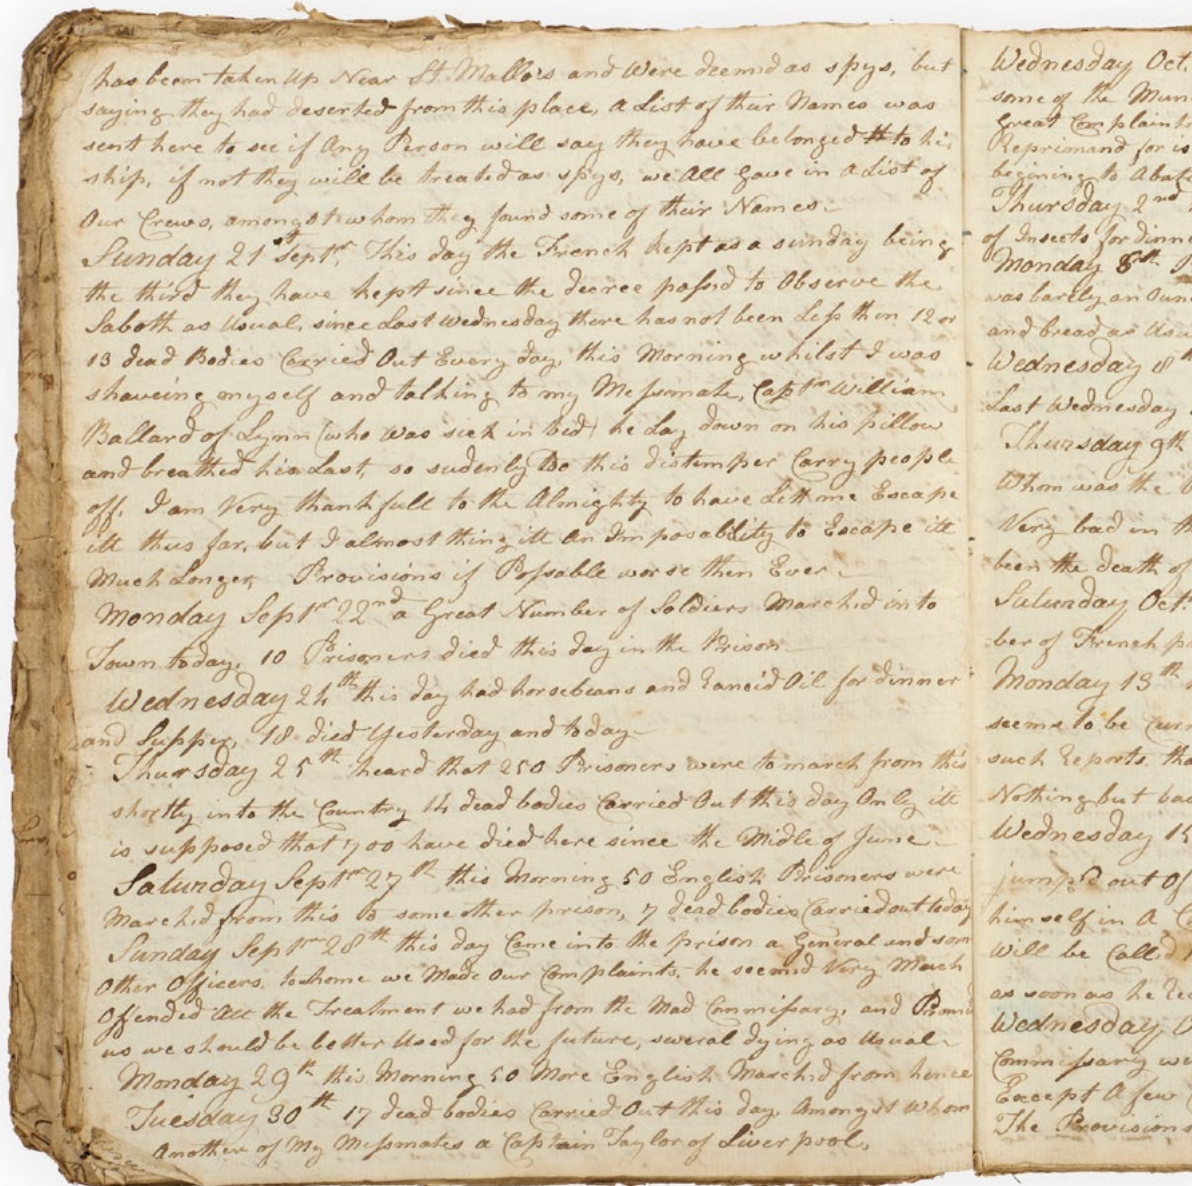 has been taken Up Near St. Mallo's and Were deemid as spys, but
saying they had deserted from this place, A List of their Names was
sent here to see if Any Person will say they have belonged to his
ship, if not they will be treated as spys, we All Gave in A List of
Our Crews, amongst whom they found some of their Names.
Sunday 21st Septr. This day the French kept as a sunday being
the third they have kept since the decree passid to Observe the
Saboth as Usual, since Last Wednesday there has not been Less then 12 or
13 dead Bodies Carried Out Every day, this Morning whilst I was
shaveing myself and talking to my Messmate, Captn William
Ballard of Lynn (who Was sick in bed) he Lay down on his pillow
and breathed his Last, so sudenly Do this distemper Carry people
off, I am Very thankfull to the Almighty to have Lett me Escape
itt thus far, but I almost thing itt An Imposability to Escape itt
Much Longer, Provisions if Possable worse then Ever.
Monday Septr 22nd a Great Number of Soldiers Marchid into
Town today, 10 Prisoners died this day in the Prison
Wednesday 24th this day had horsebeans and Rancid Oil for dinner
and Supper, 18 died Yesterday and today
Thursday 25th heard that 250 Prisoners were to march from this
shortly into the Country 14 dead bodies Carried Out this day Only itt
is supposed that 700 have died here since the Midle of June
Saturday Septr 27th this Morning 50 English Prisoners were
Marchid from this to some other prison, 7 dead bodies Carried out today
Sunday Septr 28th this day Came into the prison a General and som
Other Officers, to whome we Made Our Complaints, he seemid Very Much
Offended Att the Treatment we had from the Mad Commissary, and Promis
us we should be better Used for the future, several dying as Usual
Monday 29th this Morning 50 More English Marchid from hence
Tuesday 30th 17 dead bodies Carried Out this day, Amongst Whom
Another of My Messmates a Captain Taylor of Liverpool,
Wednesday Oct.
some of the
Great Complaints
Reprimand for
begining to Abate
Thursday 2nd
of Insects for dinne
Monday
was barely an Oun
and bread as Usu
Wednesday 8th
Last Wednesday
Thursday 9th
Whom was the
Very bad in th
been the death of
Saturday Octr.
ber of French
Monday 13th
seems to be
such Reports, tha
Nothing but bad
Wednesday 15
jump'd out Of
himself in A
Will be Callid
as soon as he
Wednesday
Commissary
Except A few
The Provisions